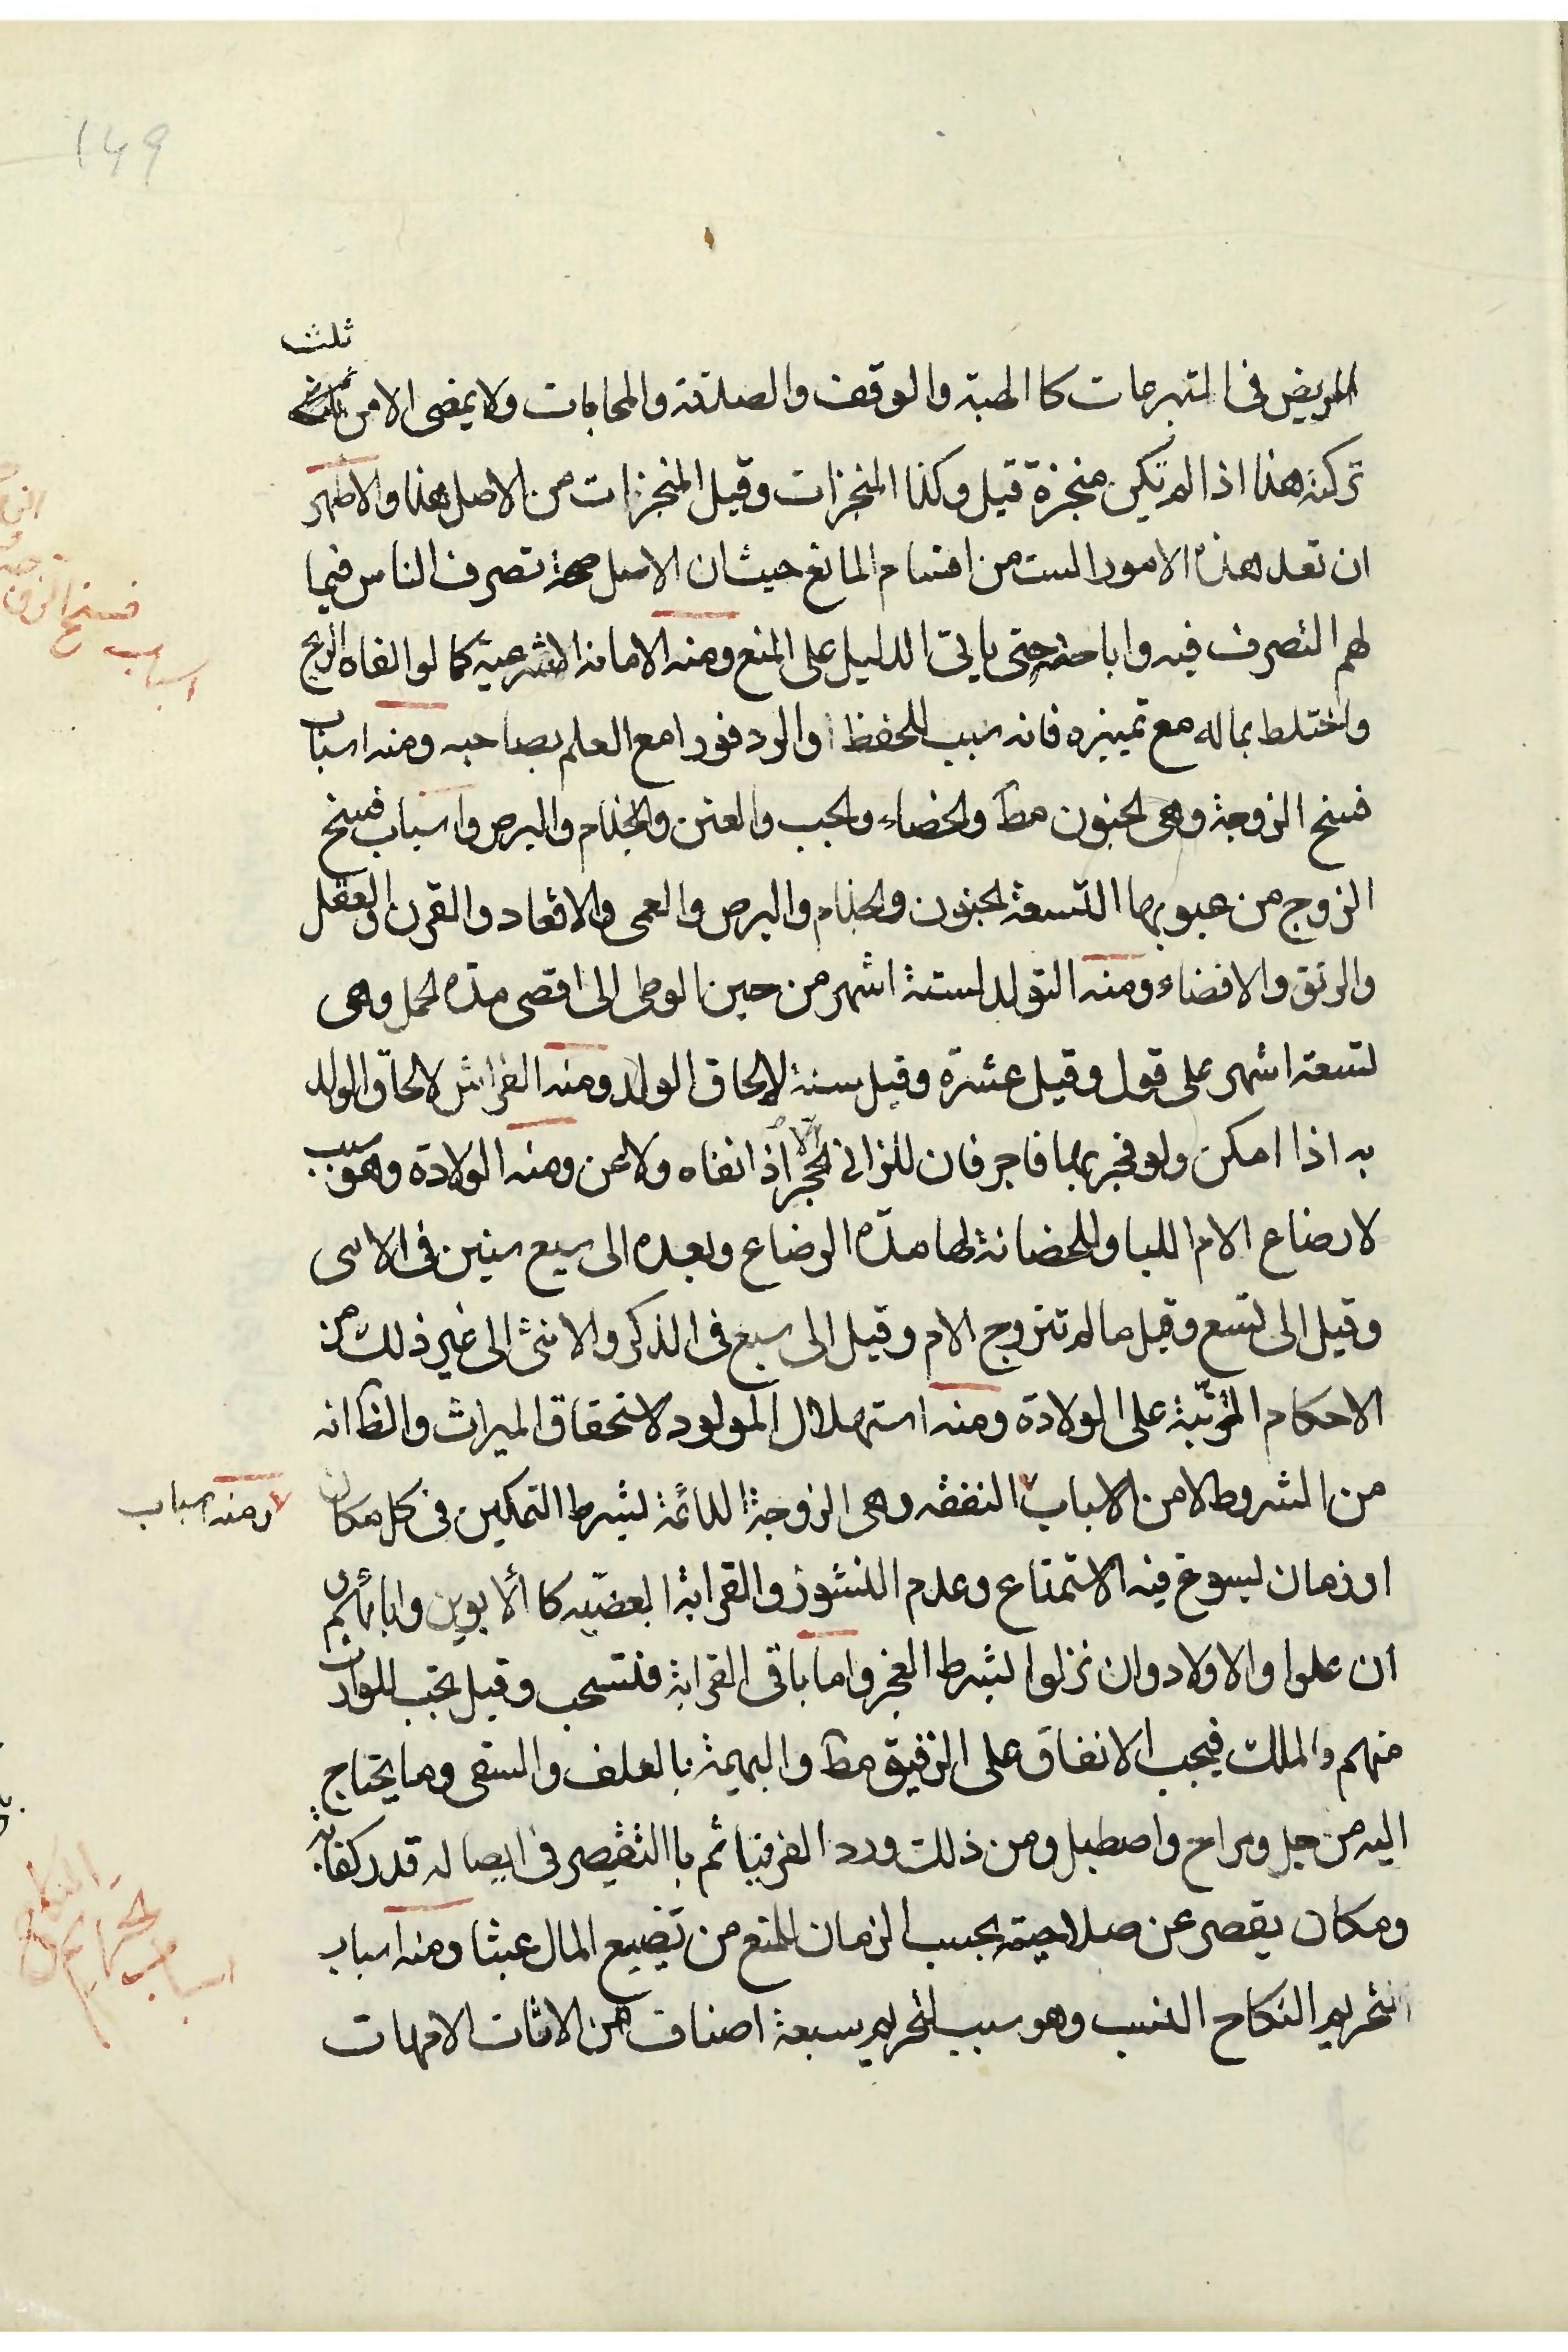 149
ثلث
المريض فى التبرعات كا الهبة والوقف والصدقة والمحابات ولا يمضى الا من
تركته هذا اذا لم تكن منجزة قيل وكذا المنجزات وقيل المنجزات من الاصل هذا والاظهر
ان تعد هذه الامور الست من اقسام المانع حيث ان الاصل صحة تصرف الناس فيما
لهم التصرف فيه واباحته حتى ياتى الدليل على المنع ومنه الامانة الشرعية كما لو القاه الريح
واختلط بماله مع تميزه فانه سبب للحفظ والرد فورا مع العلم بصاحبه ومنه اسباب
فسخ الزوجة وهى الجنون مط والخصاء والجب والعنن والجذام والبرص واسباب فسخ
الزوج من عيوبها التسعة الجنون والجذام والبرص والعمى والاقعاد والقرن والعفل
والرتق والافضاء ومنه التولد لستة اشهر من حين الوطى الى اقصى مدة الحمل وهى
لتسعة اشهر على قول وقيل عشرة وقيل سنة لالحاق الولد ومنه الفراش لالحاق الولد
به اذا امكن ولو فجر بها فاجر فان للزانى الحجر الا اذا نفاه ولاعن ومنه الولادة وهو سبب
لارضاع الام اللبا وللحضانة لها مدة الرضاع وبعده الى سبع سنين فى الانثى
وقيل الى تسع وقيل ما لم تتزوج الام وقيل الى سبع فى الذكر والانثى الى غير ذلك من
الاحكام المترتبة على الولادة ومنه استهلال المولود لاستحقاق الميراث والظ انه
من الشروط لا من الاسباب النفقه وهى الزوجة الدائمة لشرط التمكين فى كل مكان
ومنه اسباب
او زمان يسوغ فيه الاستمتاع وعدم النشوز والقرابة البعضيه كا الابوين وابائهم
ان علوا والاولاد وان نزلوا بشرط العجز واما باقى القرابة فلتستحب وقيل تجب للوارث
منهم والملك فيجب الانفاق على الرقيق مط والبهيمة بالعلف والسقى وما يحتاج
اليه من جل ومراح واصطبل ومن ذلك دود القز فياثم با التقصير فى ايصاله قدر كفايته
ومكان يقصر عن صلاحيته بحسب الزمان للمنع من تضييع المال عبثا ومنه اسباب
تحريم النكاح النسب وهو سبب لتحريم سبعة اصناف من الاناث الامهات
اسباب فسخ
اسباب تحريم النكاح